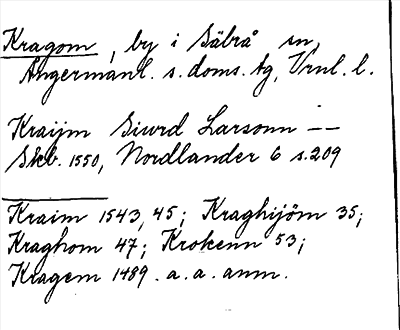 Kragom, by i Säbrå sn,
Ångermanl. s. doms. tg, Vrnl. l.
Kraijm Siurd Larsonn --
Skb. 1550, Nordlander 6 s. 209
Kraim 1543, 45; Kraghijöm 35;
Kraghom 47; Krokenn 53;
Kragem 1489. a. a. anm.